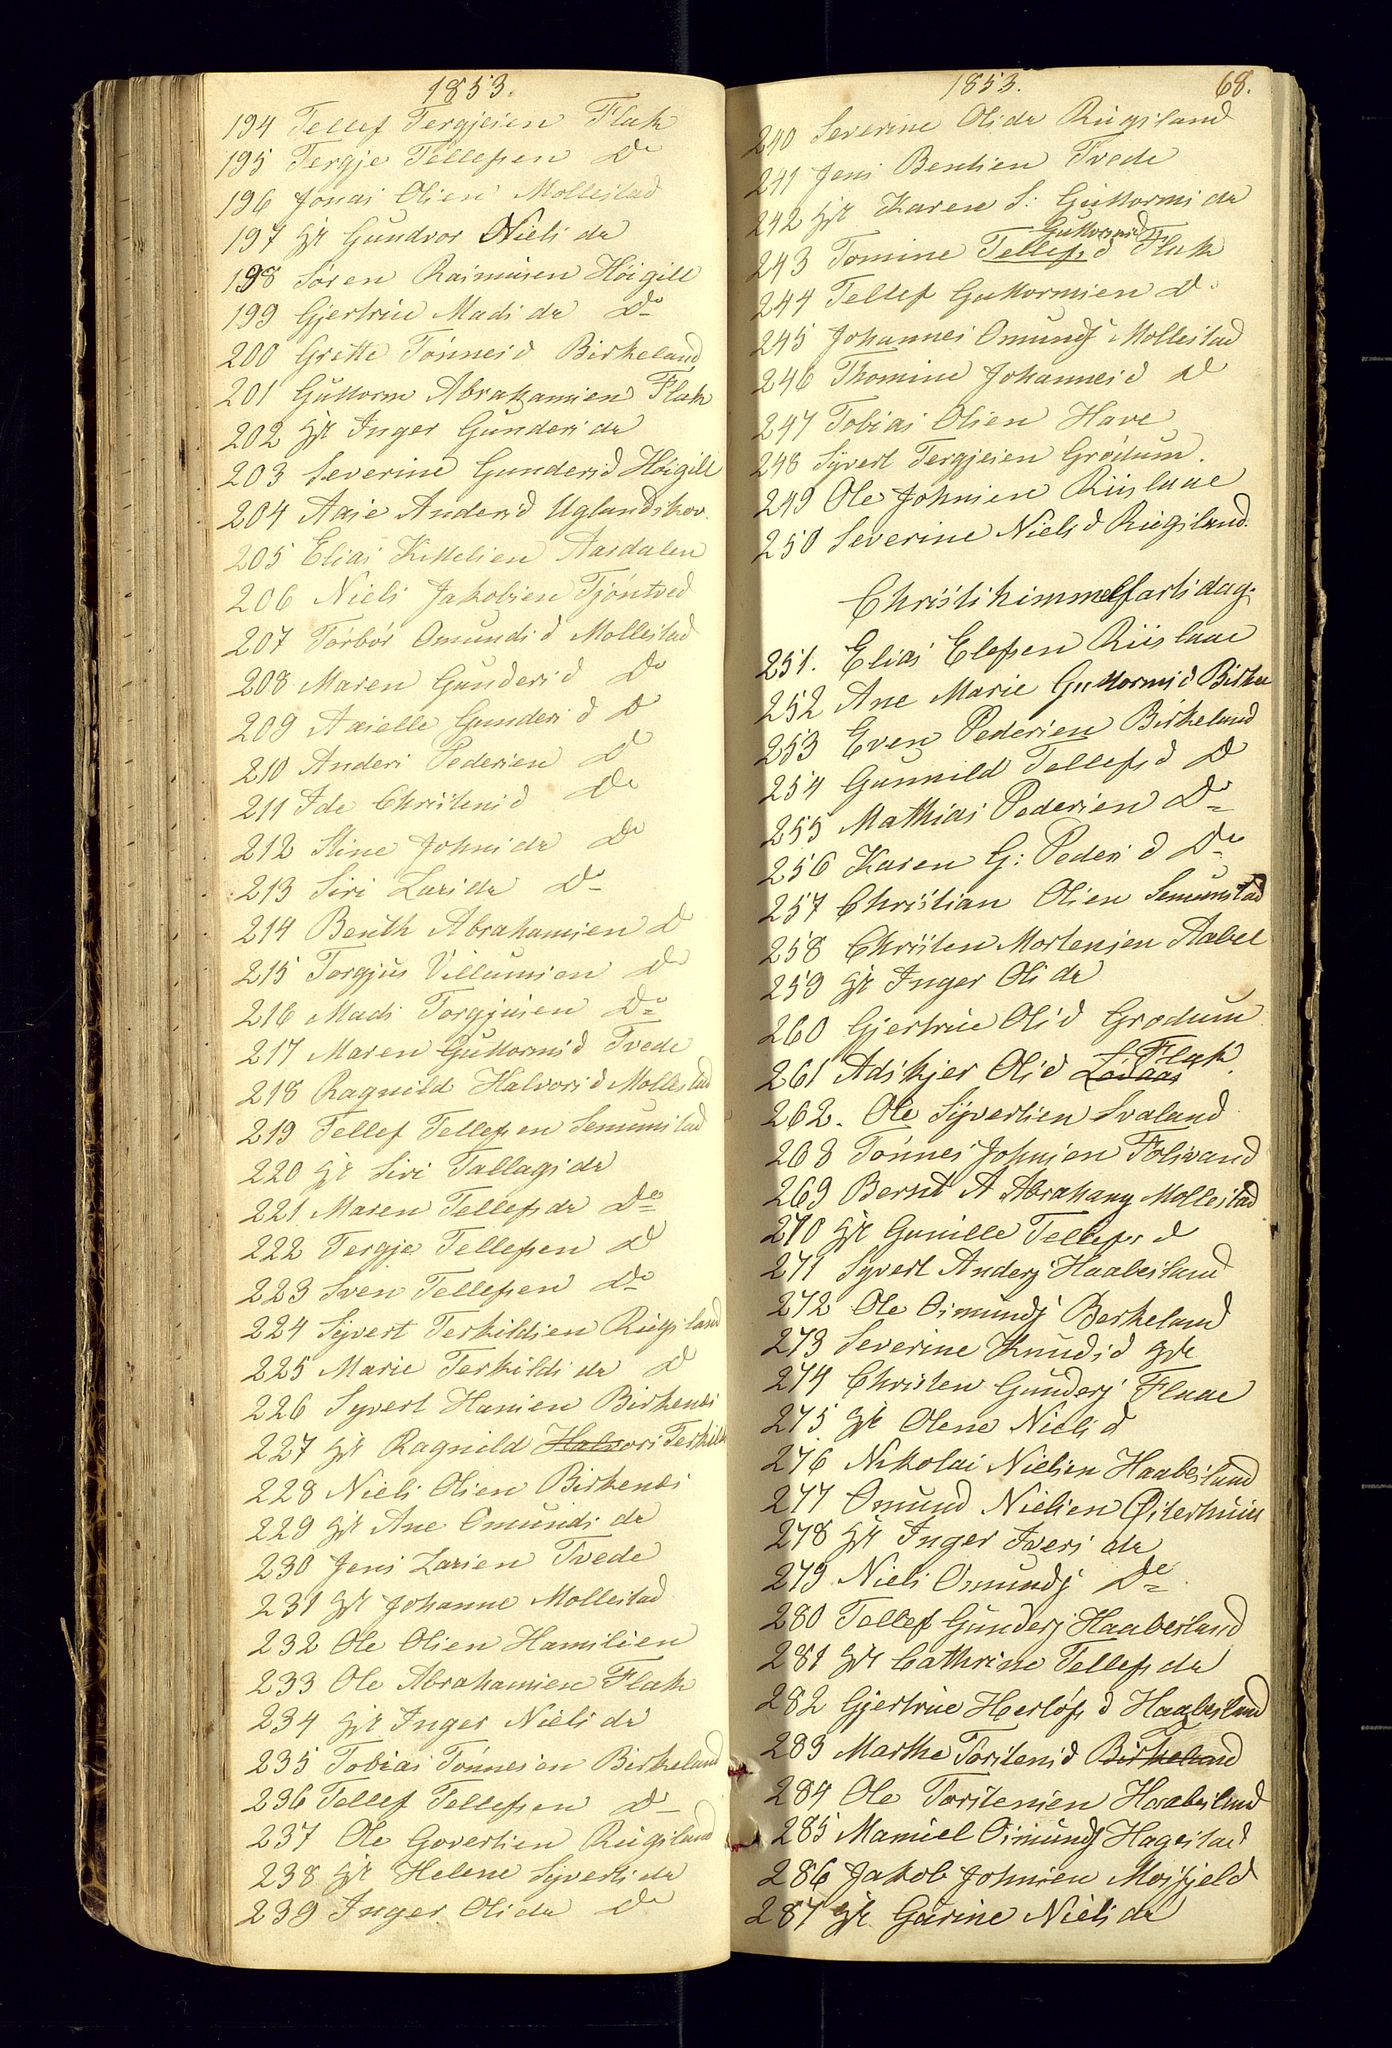 1853.
194 Tellef Tergjesen Flak
195 Tergje Tellefsen Do
196 Jonas Olsen Mollestad
197 Hr Gundvor Niels dr
198 Søren Rasmusen Høigill
199 Gjertrue Mads dr Do
200 Grette Tønnesd Birkeland
201 Guttorm Abrahamsen Flak
202 Hr Inger Gunders dr
203 Severine Gundersd Høigill
204 Aase Andersd Uglandskov.
205 Elias Kittelsen Aasdalen
206 Niels Jakobsen Tjøntved
207 Torbør Omunds d Mollestad
208 Maren Gunders d Do
209 Aaselle Gunders d Do
210 Anders Pedersen Do
211 Ide Christens d Do
212 Stine Johns dr Do
213 Siri Lars dr Do
214 Benth Abrahamsen Do
215 Torgjus Villumsen Do
216 Mads Torgjusen Do
217 Maren Guttorms d Tvede
218 Ragnild Halvors d Mollestad
219 Tellef Tellefsen Semunstad
220 Hr Siri Tallags dr
221 Maren Tellefs dr Do
222 Tergje Tellefsen Do
223 Sven Tellefsen Do
224 Syvert Terkildsen Rugsland
225 Marie Terkilds dr Do
226 Syvert Hansen Birkenes
227 Hr Ragnild Halvors Terkilds
228 Niels Olsen Birkenes
229 Hr Ane Omunds dr
230 Jens Larsen Tvede
231 Hr Johanne Mollestad
232 Ole Olsen Hamilsen
233 Ole Abrahamsen Flak
234 Hr Inger Niels dr
235 Tobias Tønnesen Birkeland
236 Tellef Tellefsen Do
237 Ole Govertsen Rugsland
238 Hr Helene Syverts dr
239 Inger Ols dr Do
1853. 68.
240 Severine Ols dr Rugsland
241 Jens Bentsen Tvede
242 Hr Karen S: Guttorms dr
Guttormsd
243 Tomine Tellefs d Flak
244 Tellef Guttormsen Do
245 Johannes Omundsj Mollestad
246 Thomine Johannes d Do
247 Tobias Olsen Have
248 Syvert Tergjesen Grødum.
249 Ole Johnsen Riislaae
250 Severine Niels d Rugsland.
Christihimmelfartsdag.
251. Elias Elefsen Riislaae
252 Ane Marie Guttorms d Birke
253 Even Pedersen Birkeland
254 Gunnild Tellefs d Do
255 Mathias Pedersen Do
256 Karen G: Peders d Do
257 Christian Olsen Semunstad
258 Christen Mortensen Aabel
259 Hr Inger Ols dr
260 Gjertrue Ols d Grødum
L. Flak.
261 Adskjer Ols d Lovaas
262. Ole Syvertsen Svaland
268 Tønnes Johnsen Følsvand
269 Bernt A Abrahamsj Mollestad
270 Hr Gunille Tellefs d
271 Syvert Andersj Haabesland
272 Ole Osmundsj Berkeland
273 Severine Knuds d Hr
274 Christen Gundersj Flaae
275 Hr Olene Niels d
276 Nikolai Nielsen Haabesland
277 Omund Nielsen Østerhuus
278 Hr Inger Ivers dr
279 Niels Omundsj Do
280 Tellef Gundersj Haabesland
281 Hr Cathrine Tellefs dr
282 Gjertrue Herløfs d Haabesland
283 Marthe Torstens d Birkeland
284 Ole Torstensen Haabesland
285 Manuel Osmundsj Hagestad
286 Jakob Johnsen Mosfjeld
287 Hr Garine Niels dr